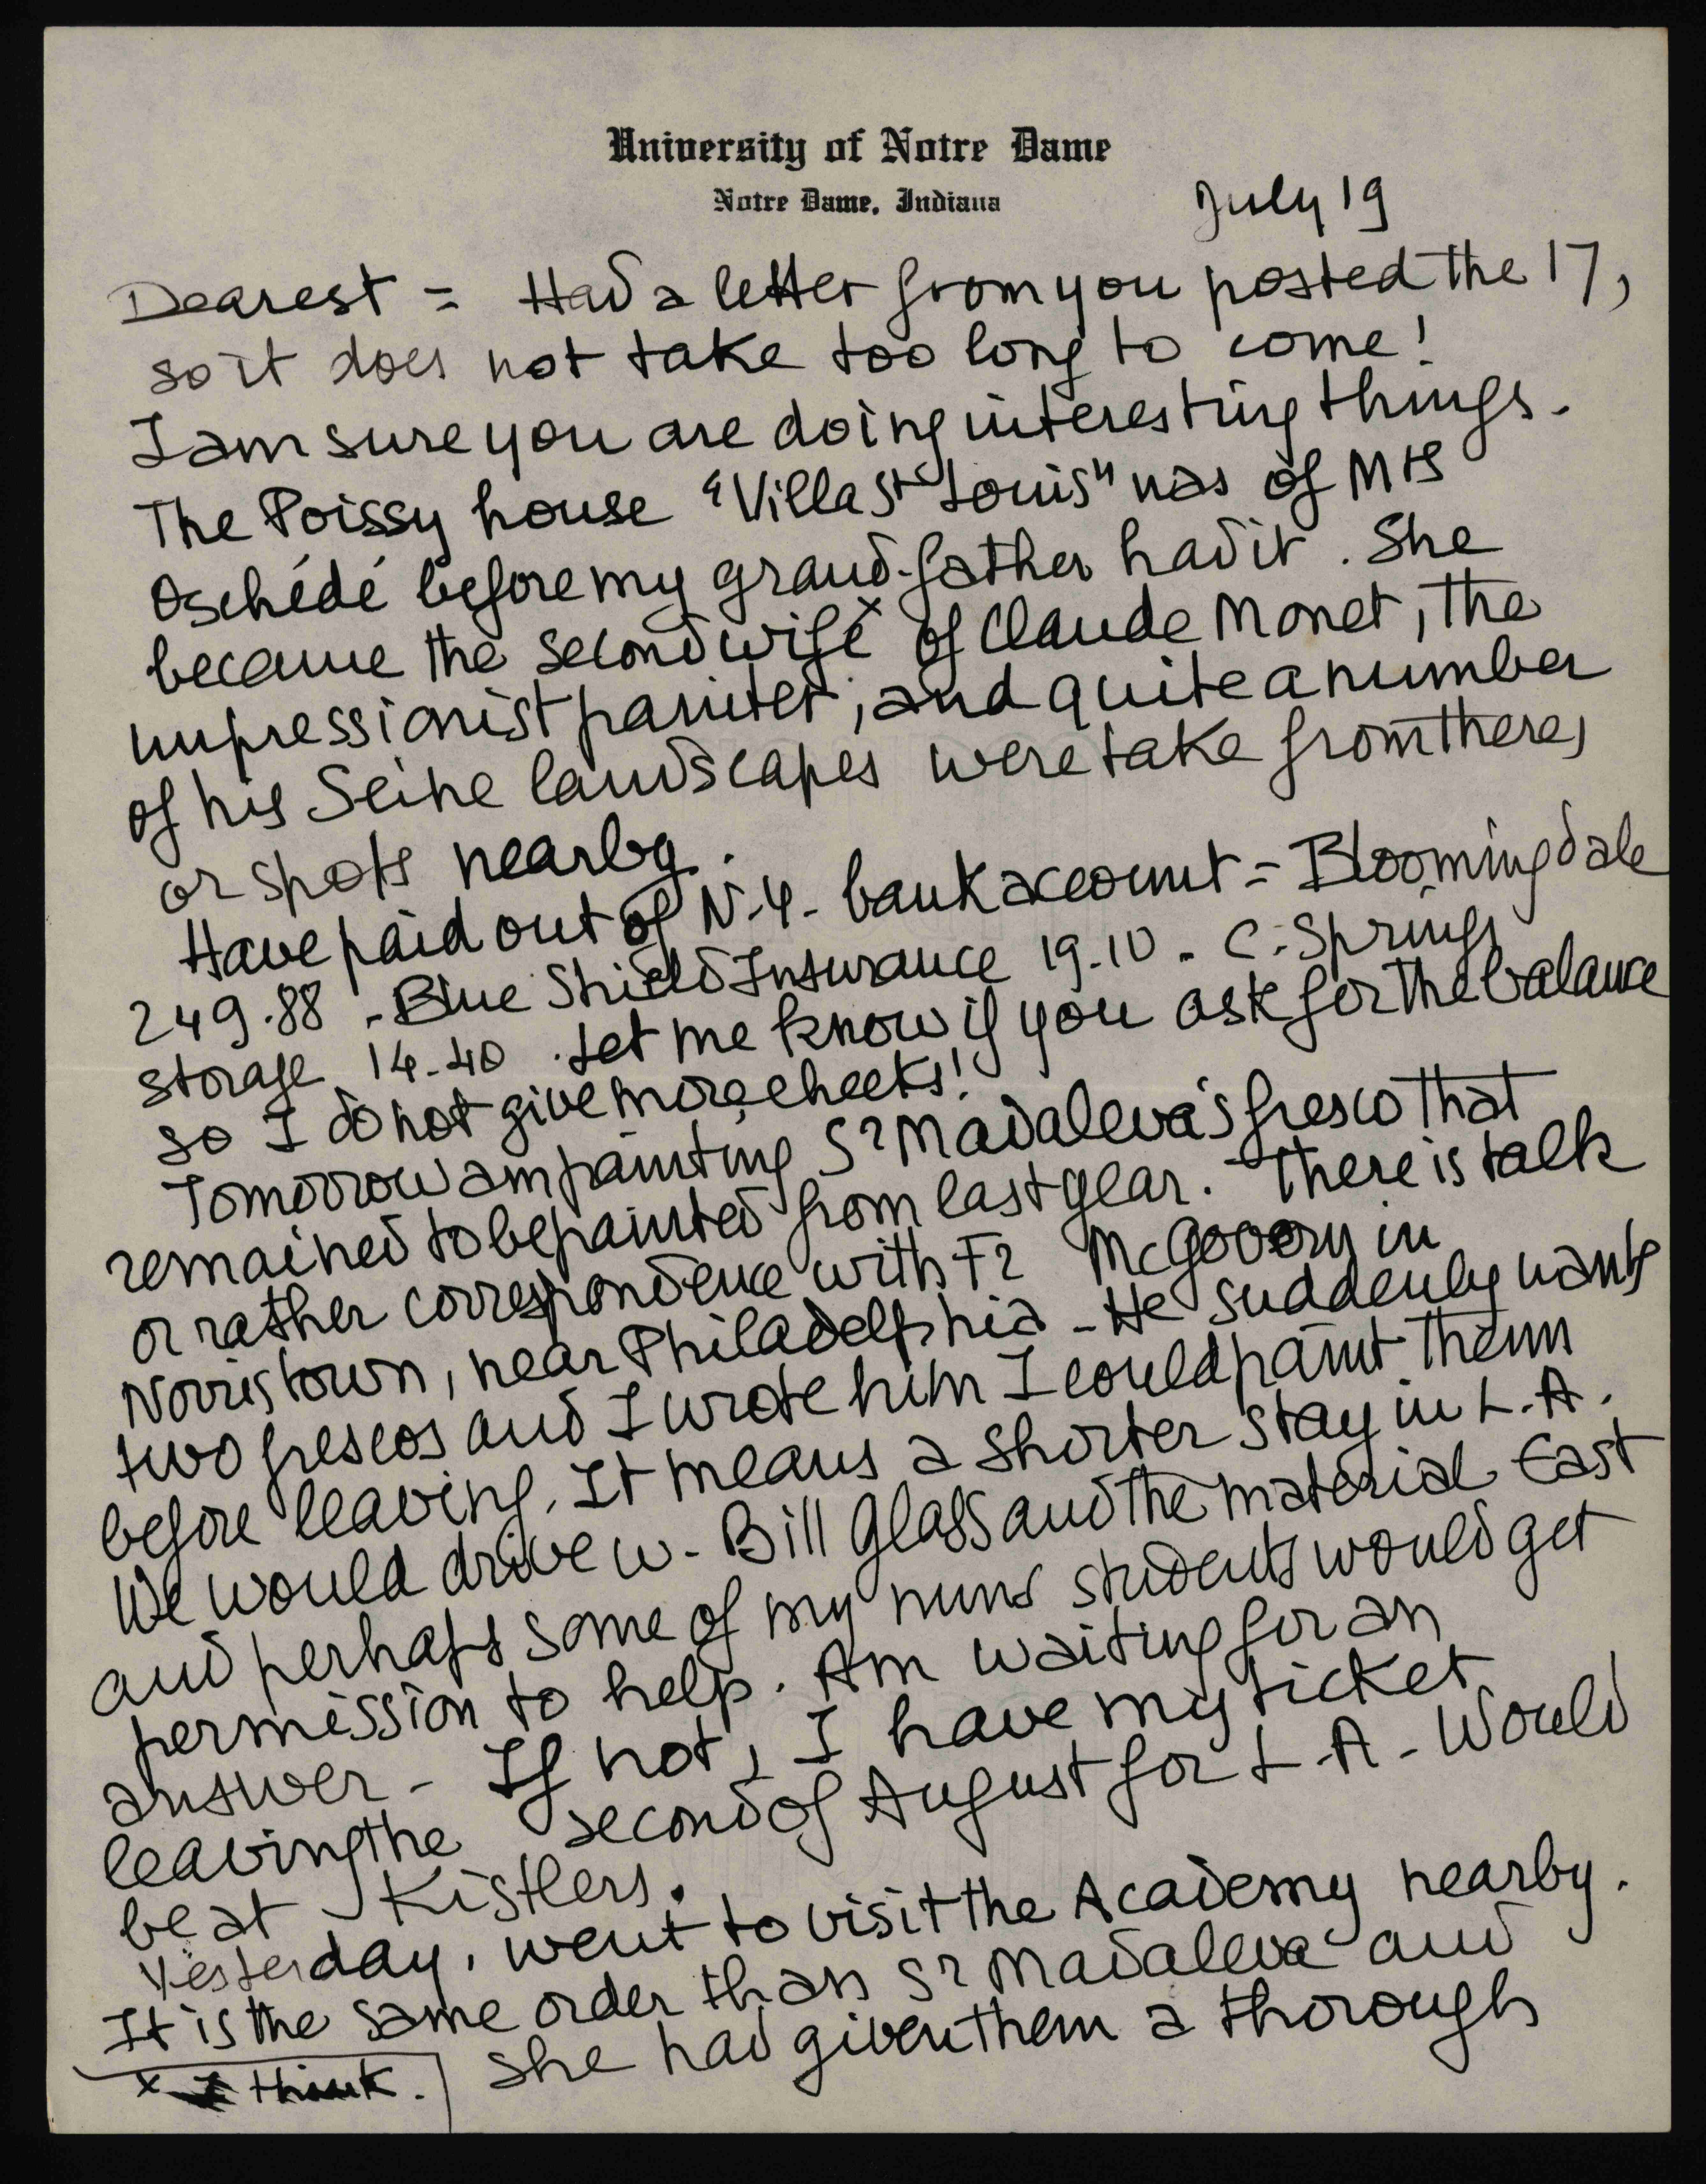 University of Notre Dame
Notre Dame, Indiana
July 19
Dearest = Had a letter from you posted the 17,
so it does not take too long to come!
I am sure you are doing interesting things.
The Poissy house "Villa St Louis" was of Mrs
Oschédé before my grand-father had it. She
became the second wife x of Claude Monet, the
impressionist painter, and quite a number
of his Seine landscapes were take from there,
or spots nearby.
Have paid out of N.Y. bank account = Bloomingdale
249.88 - Blue Shield Insurance 19.10 - C. Springs
storage 14.40. Let me know if you ask for the balance
so I do not give more checks!
Tomorrow am painting Sr Madaleva's fresco that
remained to be painted from last year. There is talk
or rather correspondence with Fr McGoory in
Norristown, near Philadelphia - He suddenly wants
two frescos and I wrote him I could paint them
before leaving. It means a shorter stay in L.A.
We would drive w. Bill Glass and the material East
and perhaps some of my nuns students would get
permission to help. Am waiting for an
answer - If not, I have my ticket
leaving the second of August for L.A - Would
be at Kistlers.
Yesterday, went to visit the Academy nearby.
It is the same order than Sr Madaleva and
she had given them a thorough
x I think.